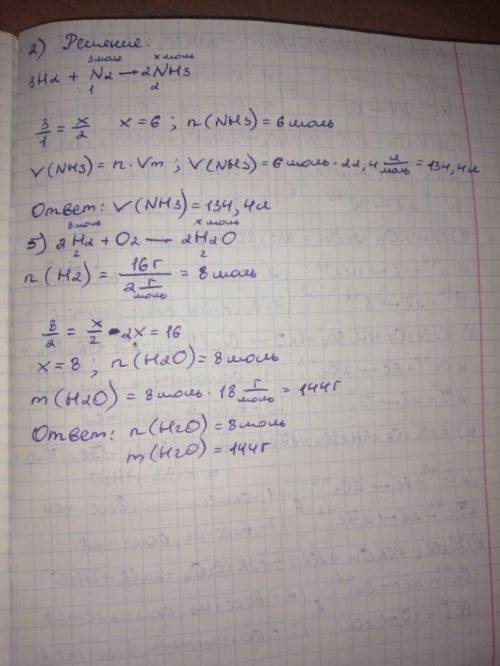 2) Решение:
3моль х моль
3H2 + N2 → 2NH3
1 2
3/1 = x/2 x = 6 ; n(NH3) = 6 моль
V(NH3) = n · Vm ; V(NH3) = 6 моль · 22,4 л/моль = 134,4 л
Ответ: V(NH3) = 134,4 л
8моль х моль
5) 2H2 + O2 → 2H2O
2 2
n(H2) = 16г / 2 г/моль = 8 моль
8/2 = x/2 2x = 16
x = 8 ; n(H2O) = 8 моль
m(H2O) = 8 моль · 18 г/моль = 144 г
Ответ: n(H2O) = 8 моль
m(H2O) = 144 г